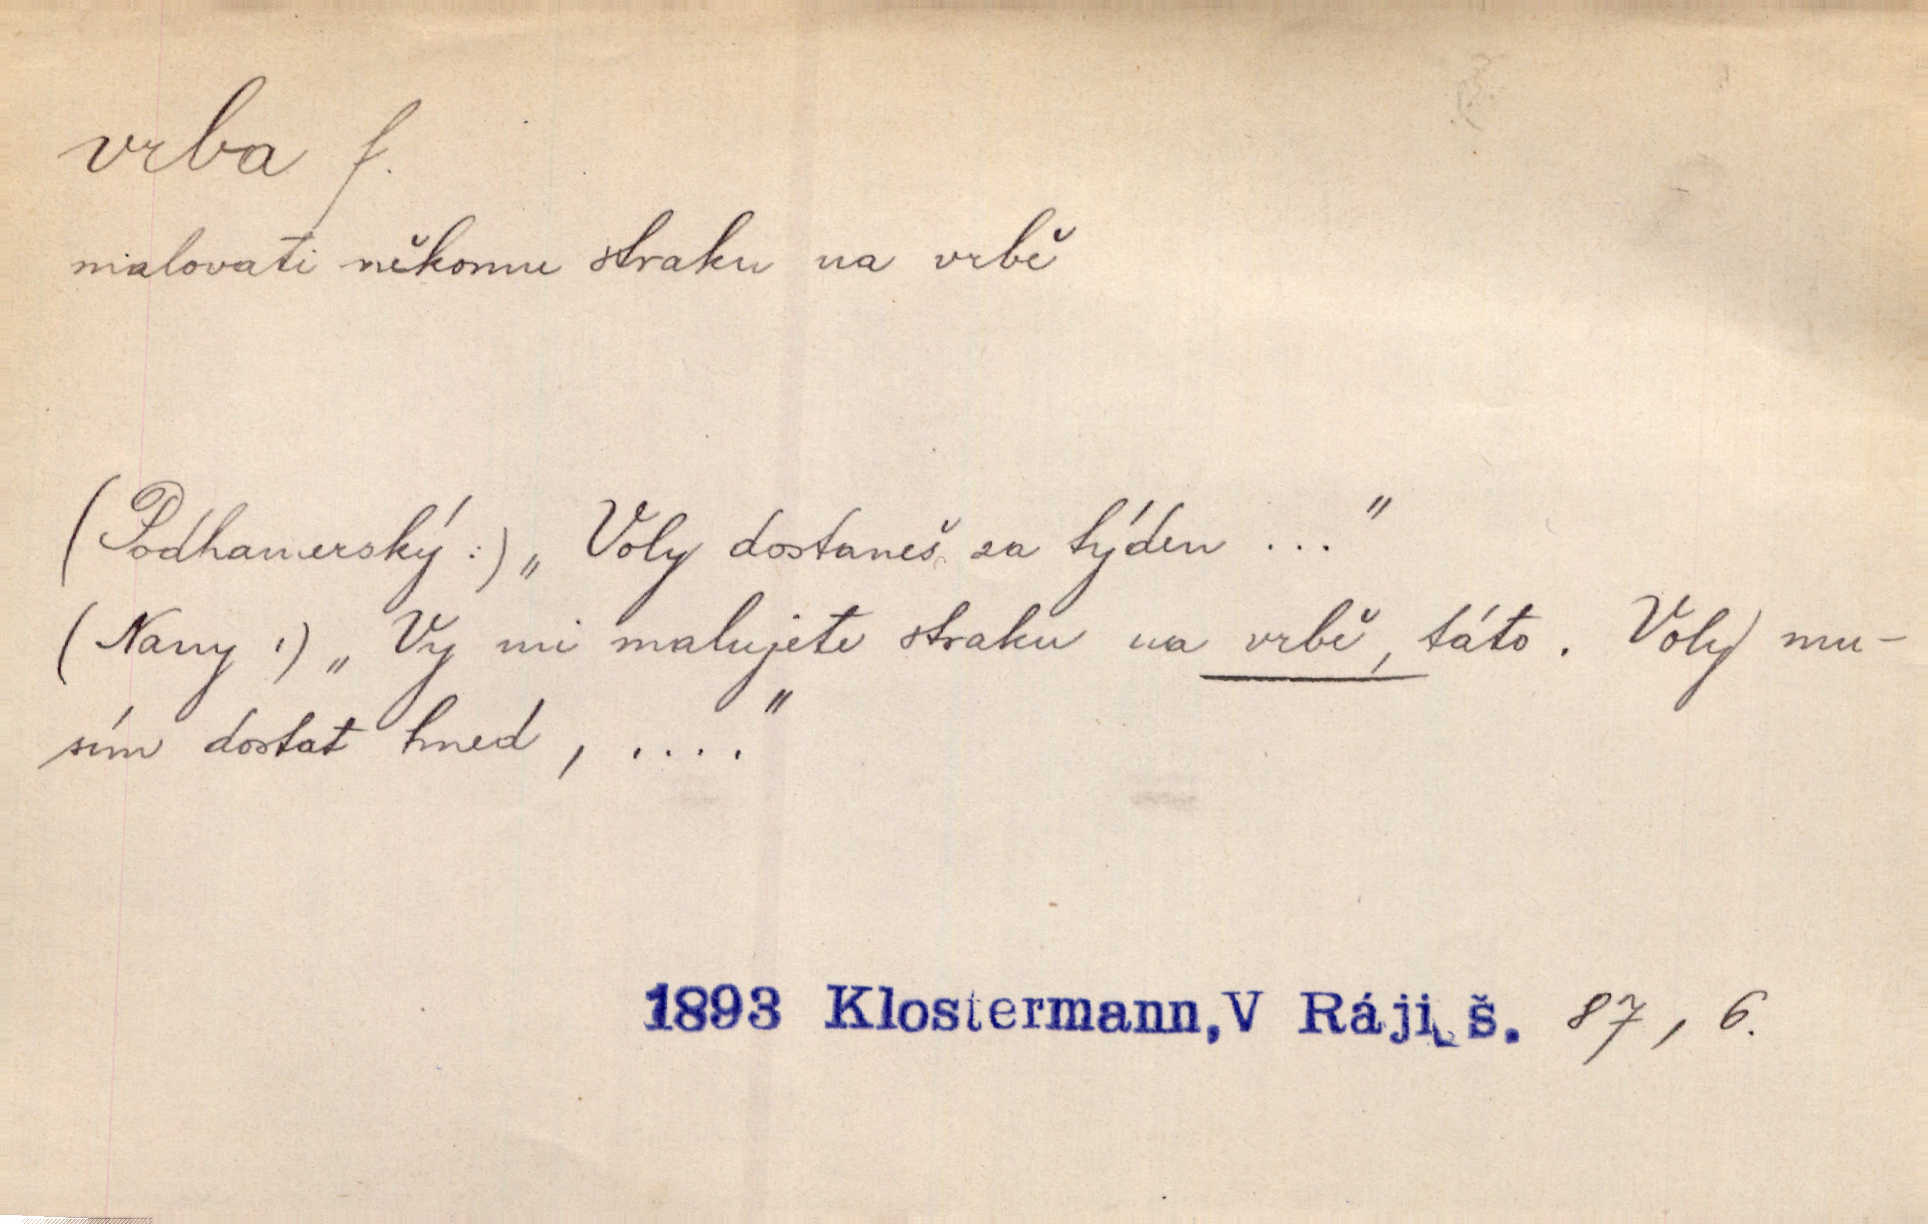 vrba f.
malovati někomu straku na vrbě
(Podhamerský:) „Voly dostaneš za týden ..."
(Nany:) „Vy mi malujete straku na vrbě, táto. Voly mu-
sím dostat hned, ...."
1893 Klostermann, V Ráji š. 87, 6.